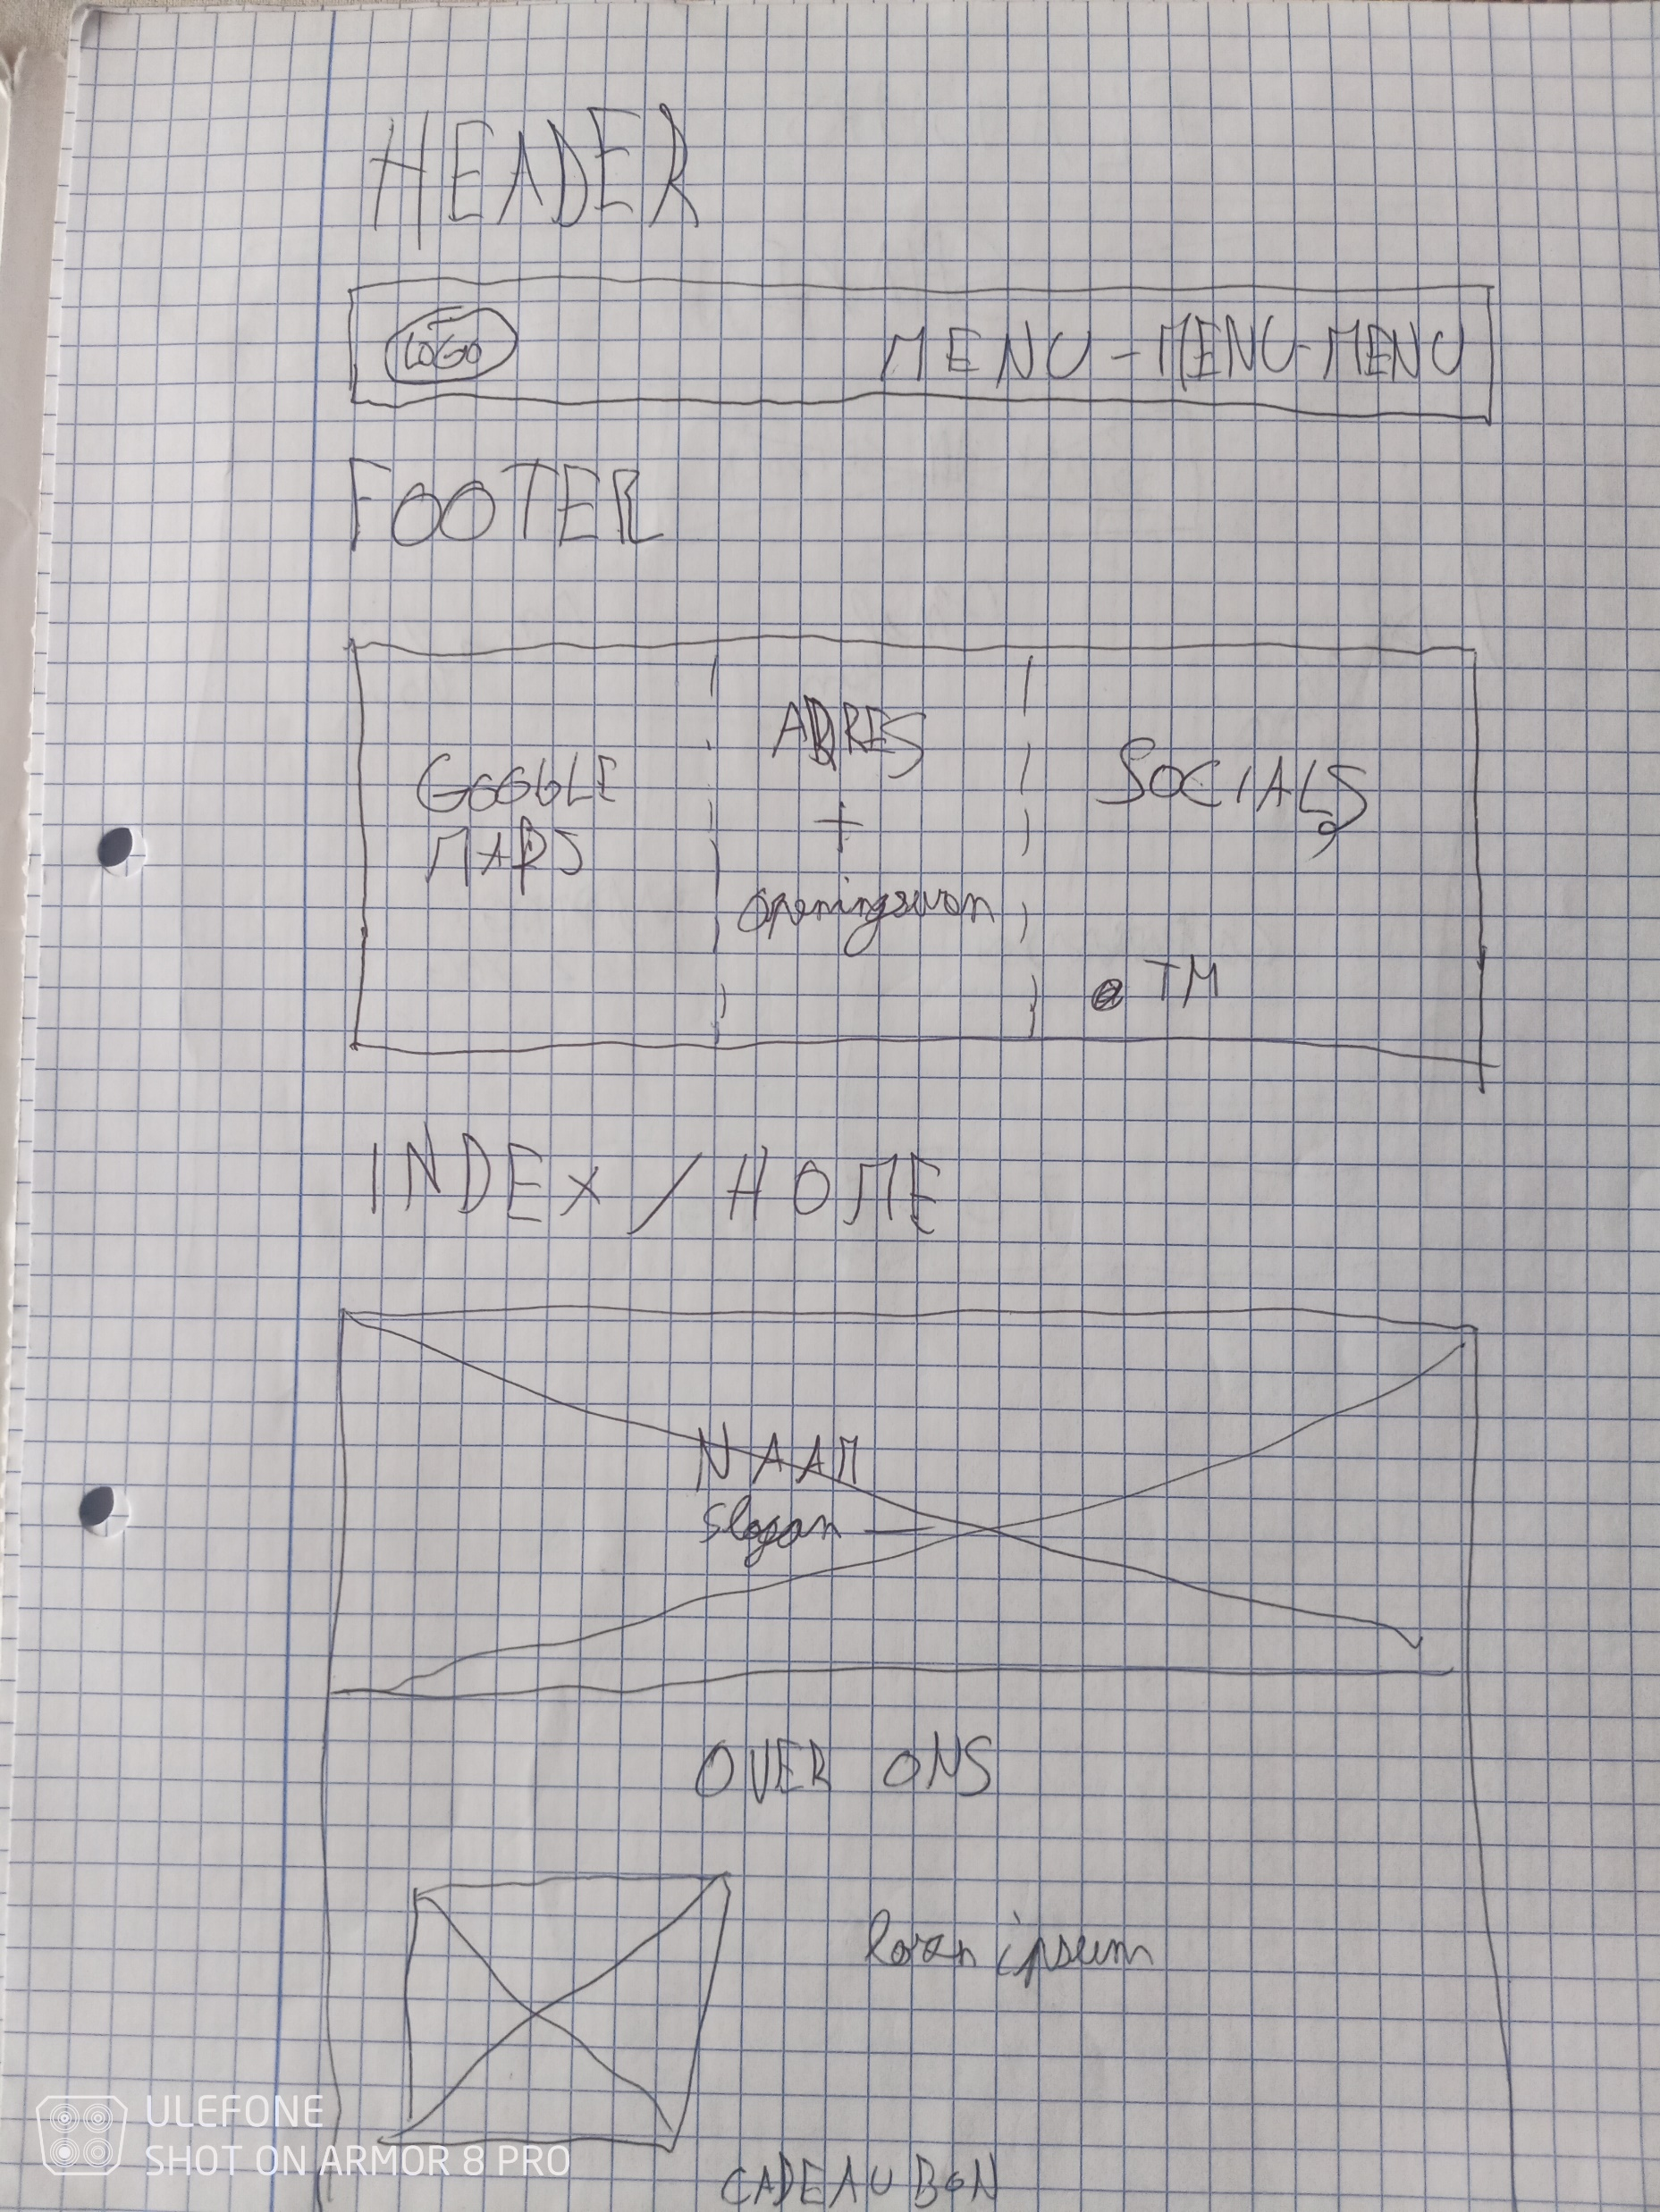 HEADER
LOGO
MENU - MENU - MENU
FOOTER
GOOGLE
MAPS
ADRES
+
openingsuren
SOCIALS
@ TM
INDEX / HOME
NAAM
Slogan
OVER ONS
lorem ipsum
CADEAUBON
ULEFONE
SHOT ON ARMOR 8 PRO